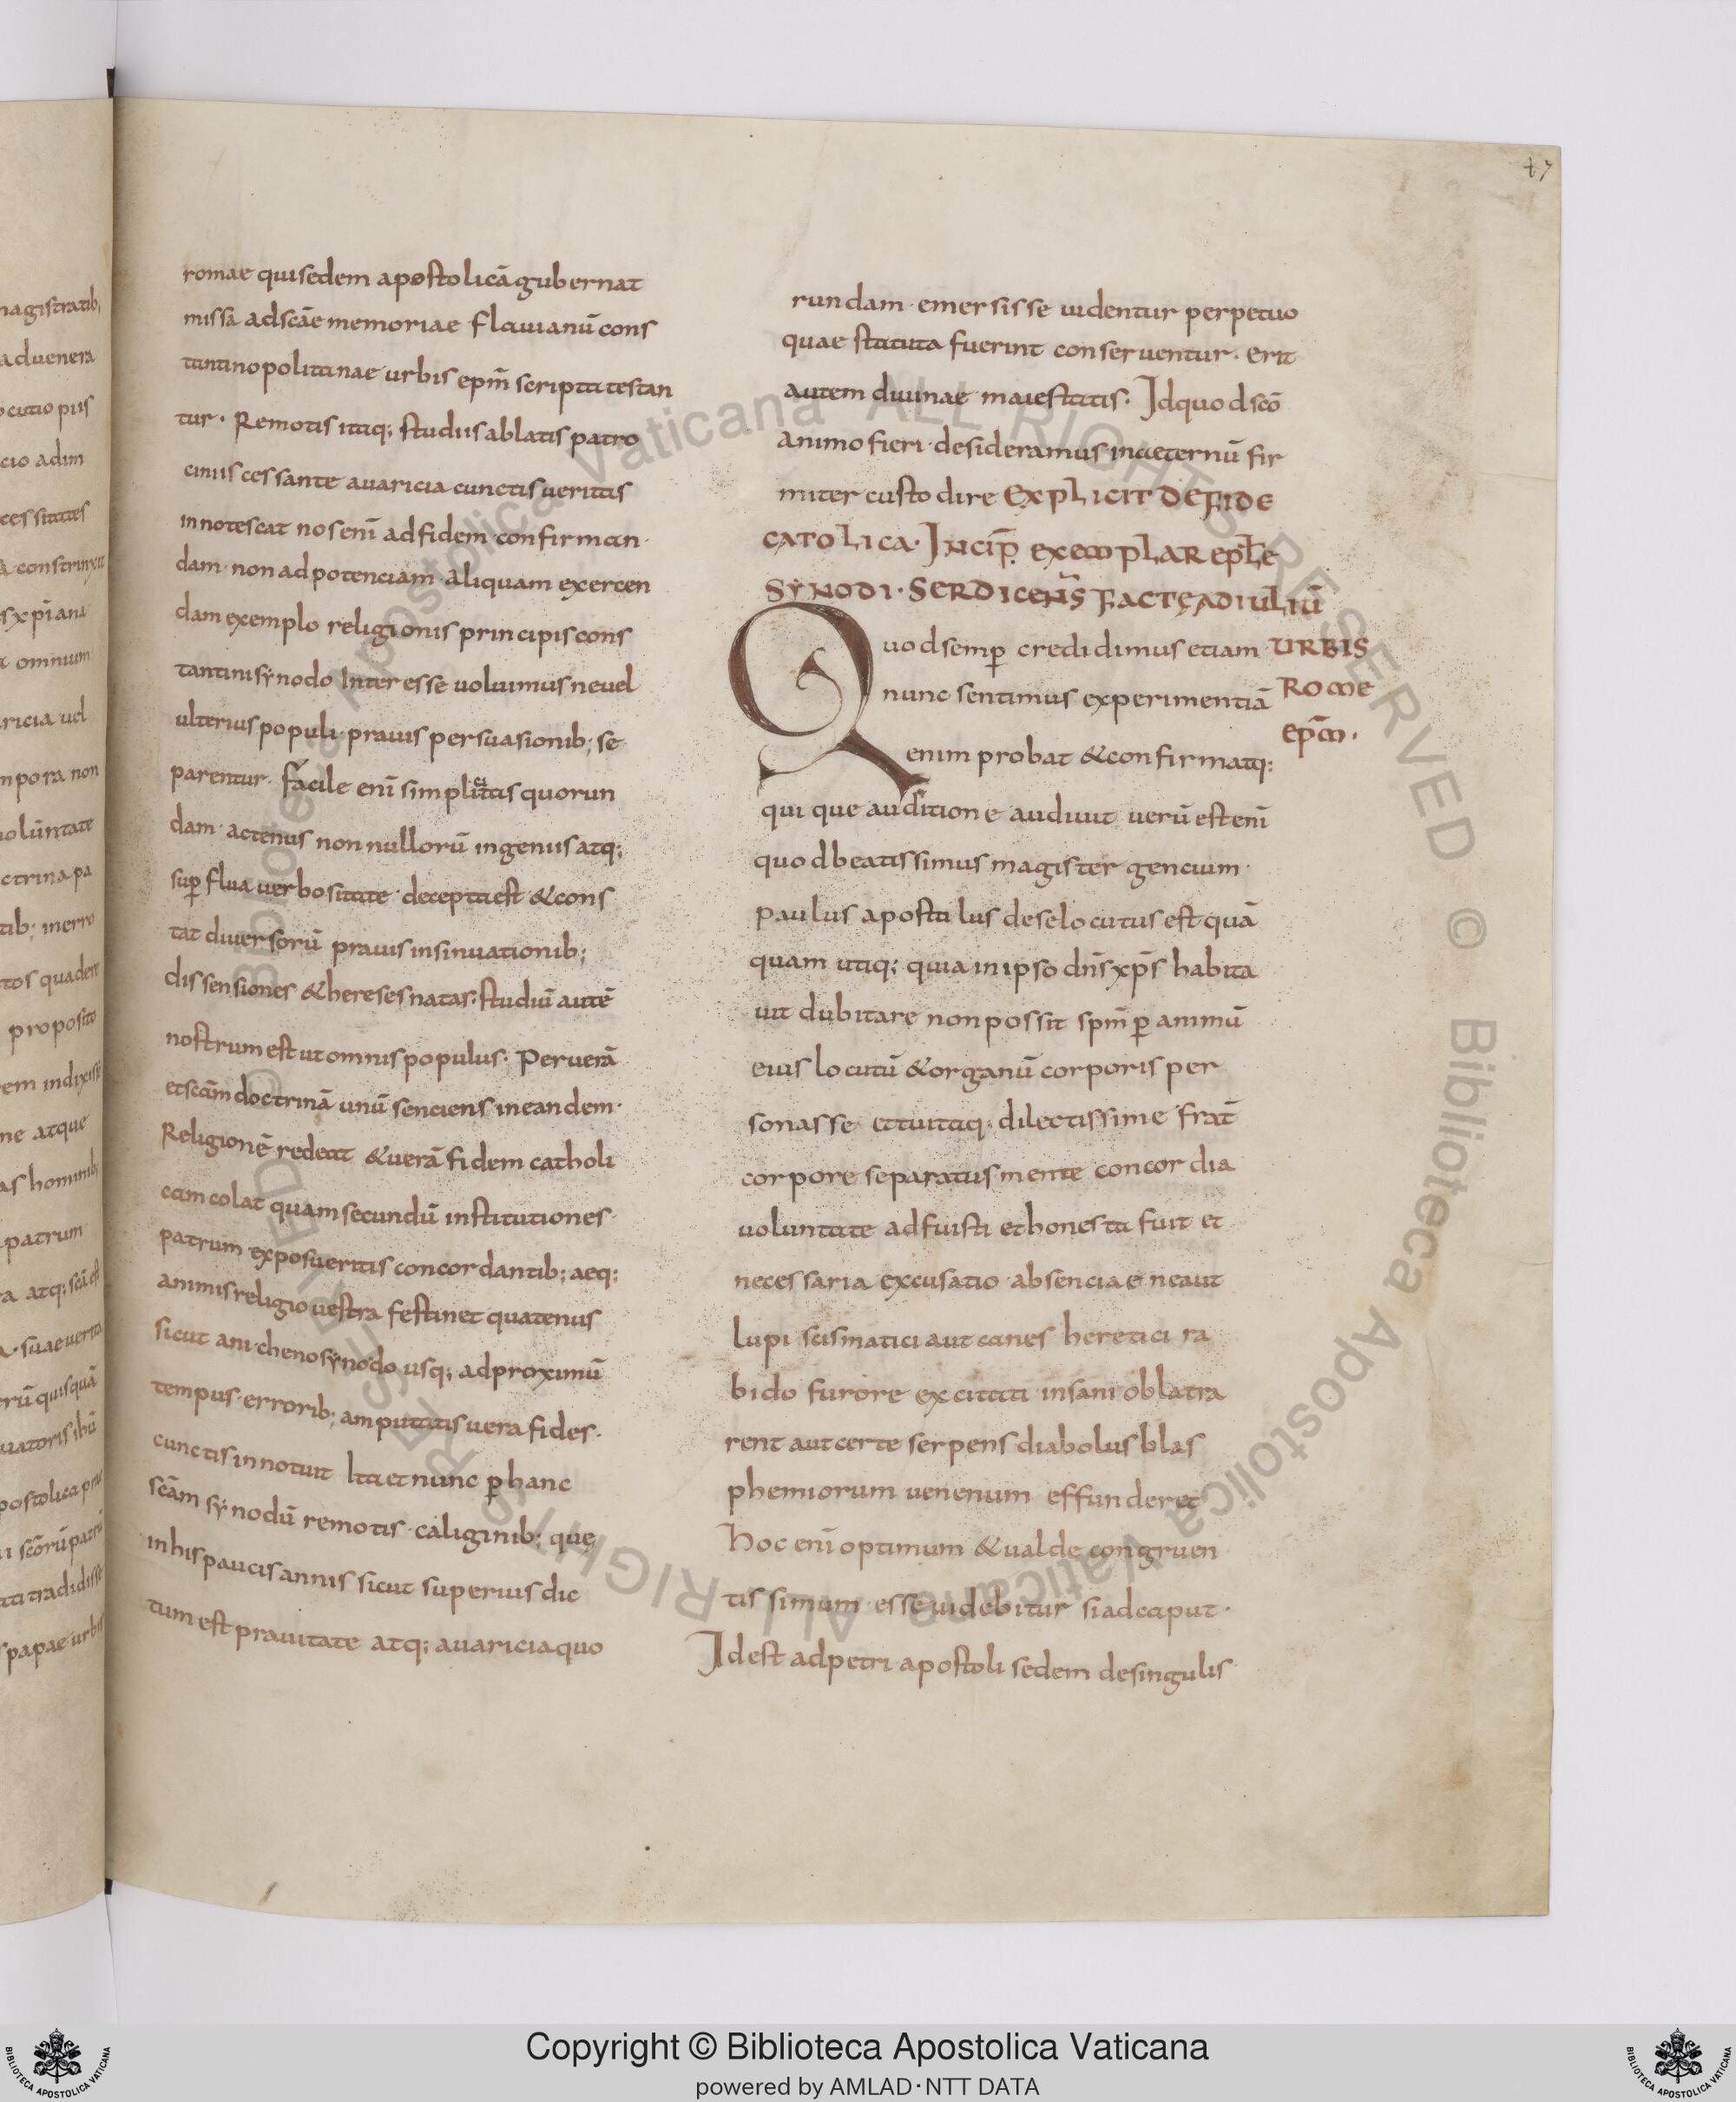 47
romae qui sedem apostolicā gubernat
missa ad scāe memoriae flauianū cons
tantinopolitanae urbis epm̄ scripta testan
tur · Remotis itaq; studiis ablatis patro
ciniis cessante auaricia cunctis ueritas
innotescat nos enī ad fidem confirman·
dam· non ad potenciam· aliquam exercen
dam exemplo religionis principis cons
tantini synodo Interesse uoluimus ne uel
ulterius populi prauis persuasionib; se
parentur· facile enī simplicitas quorun
dam· actenus non nullorū ingeniis atq;
sup̄flua uerbositate· decepta est & cons
tat diuersorū prauis insinuationib;
dissensiones & hereses natas; studiū autē
nostrum est ut omnis populus· Per uerā
et scām doctrinā unū senciens in eandem·
Religionē redeat & uerā fidem catholi
cam colat quam secundū institutiones·
patrum exposueritis concordantib; aeq;
animis religio uestra festinet quatenus
sicut ani·cheno synodo usq; ad proximū
tempus· errorib; amputatis uera fides·
cunctis innotuit Ita et nunc p̄ hanc
scām synodū remotis· caliginib; que
in his paucis annis sicut superius dic
tum est prauitate atq; auaricia quo
rundam· emersisse uidentur perpetuo
quae statuta fuerint conseruentur· erit
autem diuinae maiestatis· Id quod scō
animo fieri· desideramus in aeternū fir
miter custodire EXPLICIT DE FIDE
CATOLICA· INCIP̄ EXEMPLAR EPL̄E
SYNODI· SERDICENS̄ FACTE AD IULIŪ
URBIS
ROME
EPM̄·
Quod semp̄ credidimus etiam
nunc sentimus experimentiā
enim probat & confirmatq;
qui que auditione audiuit uerū est enī
quod beatissimus magister gencium·
paulus apostulus de se locutus est quā
quam utiq; quia in ipso dn̄s xp̄s habita
uit dubitare non possit spm̄ p̄ animū
eius locutū & organū corporis per
sonasse· et tu itaq· dilectissime frat̄
corpore separatus mente concordia
uoluntate adfuisti et honesta fuit et
necessaria excusatio absenciae ne aut
lupi scismatici aut canes heretici ra
bido furore excitati insani oblatra
rent aut certe serpens diabolus blas
phemiorum uenenum effunderet
Hoc enī optimum & ualde congruen
tissimum· esse uidebitur si ad caput·
Id est ad petri apostoli sedem de singulis
Copyright © Biblioteca Apostolica Vaticana
powered by AMLAD·NTT DATA